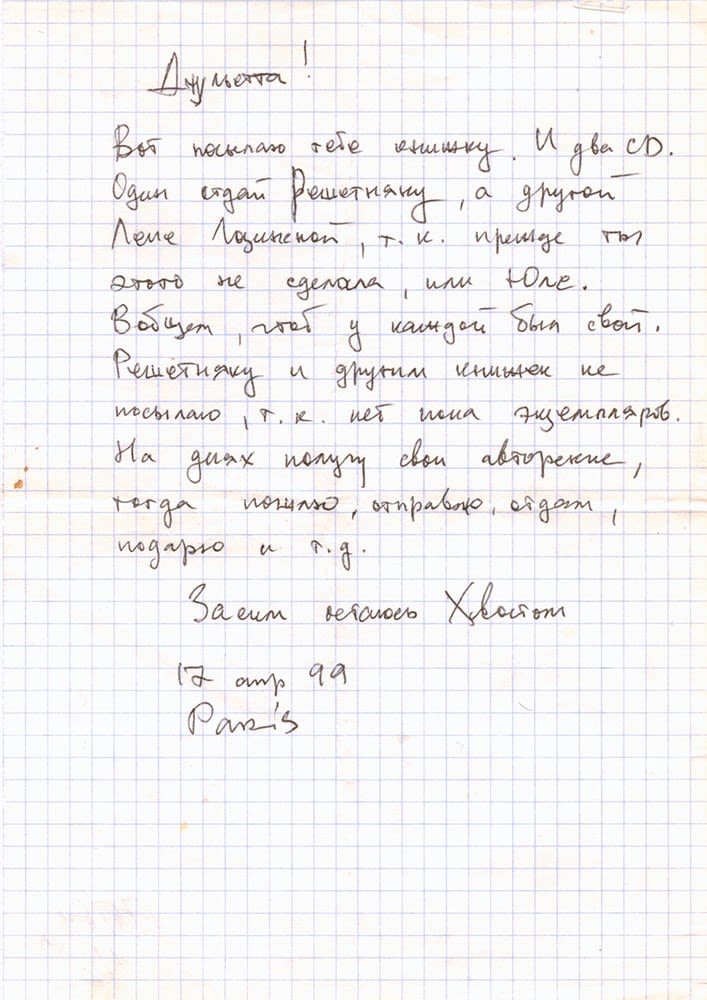 Джульетта!
Вот посылаю тебе книжку. И два CD.
Один отдай Решетняку, а другой
Лене Лозинской, т.к. прежде ты
этого не сделала, или Юле.
Вобщем, чтоб у каждой был свой.
Решетняку и другим книжек не
посылаю, т.к. нет пока экземпляров.
На днях получу свои авторские,
тогда пошлю, отправлю, отдам,
подарю и т.д.
Засим остаюсь Хвостом
17 апр 99
Paris